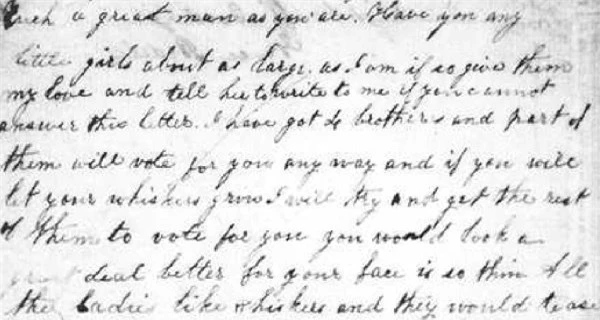 such a great man as you are. Have you any
little girls about as large as I am if so give them
my love and tell her to write to me if you cannot
answer this letter. I have got 4 brothers and part of
them will vote for you any way and if you will
let your whiskers grow I will try and get the rest
of them to vote for you you would look a
great deal better for your face is so thin All
the ladies like whiskers and they would tease